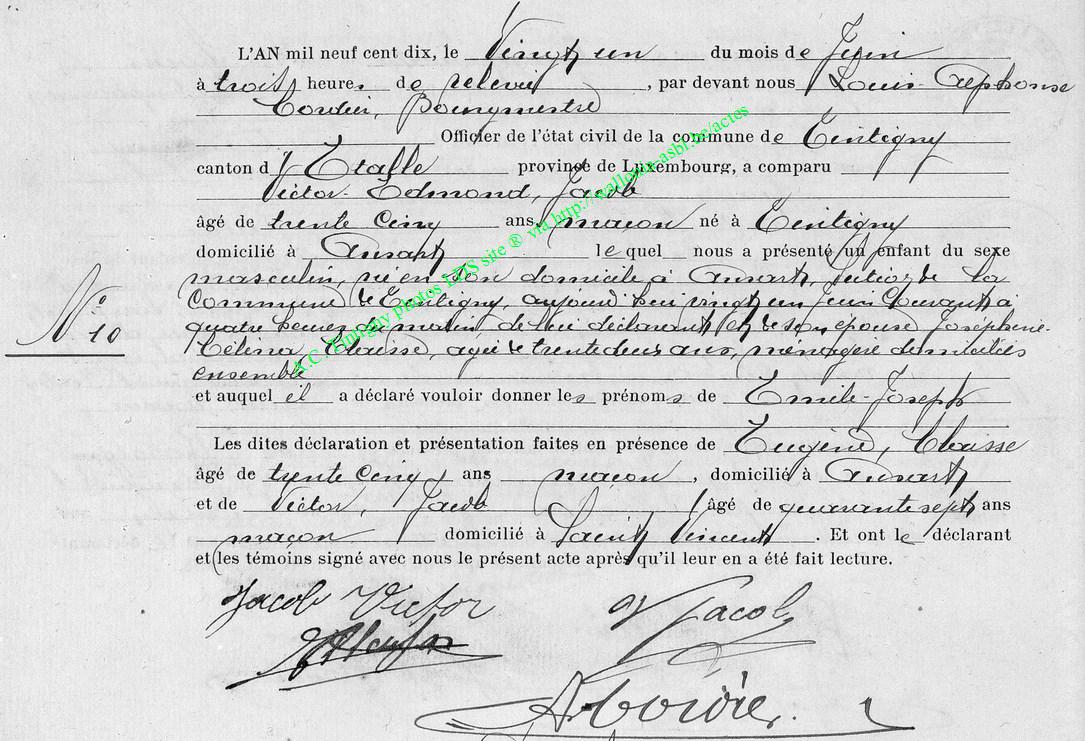 L'AN mil neuf cent dix, le Vingt un du mois de Juin
à trois heures de relevée, par devant nous Louis Alphonse
Cordier, Bourgmestre
Officier de l'état civil de la commune de Tintigny
canton d'Etalle province de Luxembourg, a comparu
Victor Edmond, Jacob
âgé de trente cinq ans, maçon né à Tintigny
domicilié à Ansart lequel nous a présenté un enfant du sexe
masculin, né en son domicile à Ansart, section de la
N° 10
Commune de Tintigny, aujourd'hui vingt un Juin courant à
quatre heures du matin, de lui déclarant et de son épouse Joséphine
Célina, Claisse, agée de trente deux ans, ménagère domiciliés
ensemble
et auquel il a déclaré vouloir donner les prénoms de Emile-Joseph
Les dites déclaration et présentation faites en présence de Eugène, Claisse
âgé de trente cinq ans maçon, domicilié à Ansart
et de Victor, Jacob âgé de quarante sept ans
maçon domicilié à Saint Vincent. Et ont le déclarant
et les témoins signé avec nous le présent acte après qu'il leur en a été fait lecture.
Jacob Victor V Jacob
A Cordier.
A.C. Tintigny photos LDS site ® via http://wallonia-asbl.be/actes